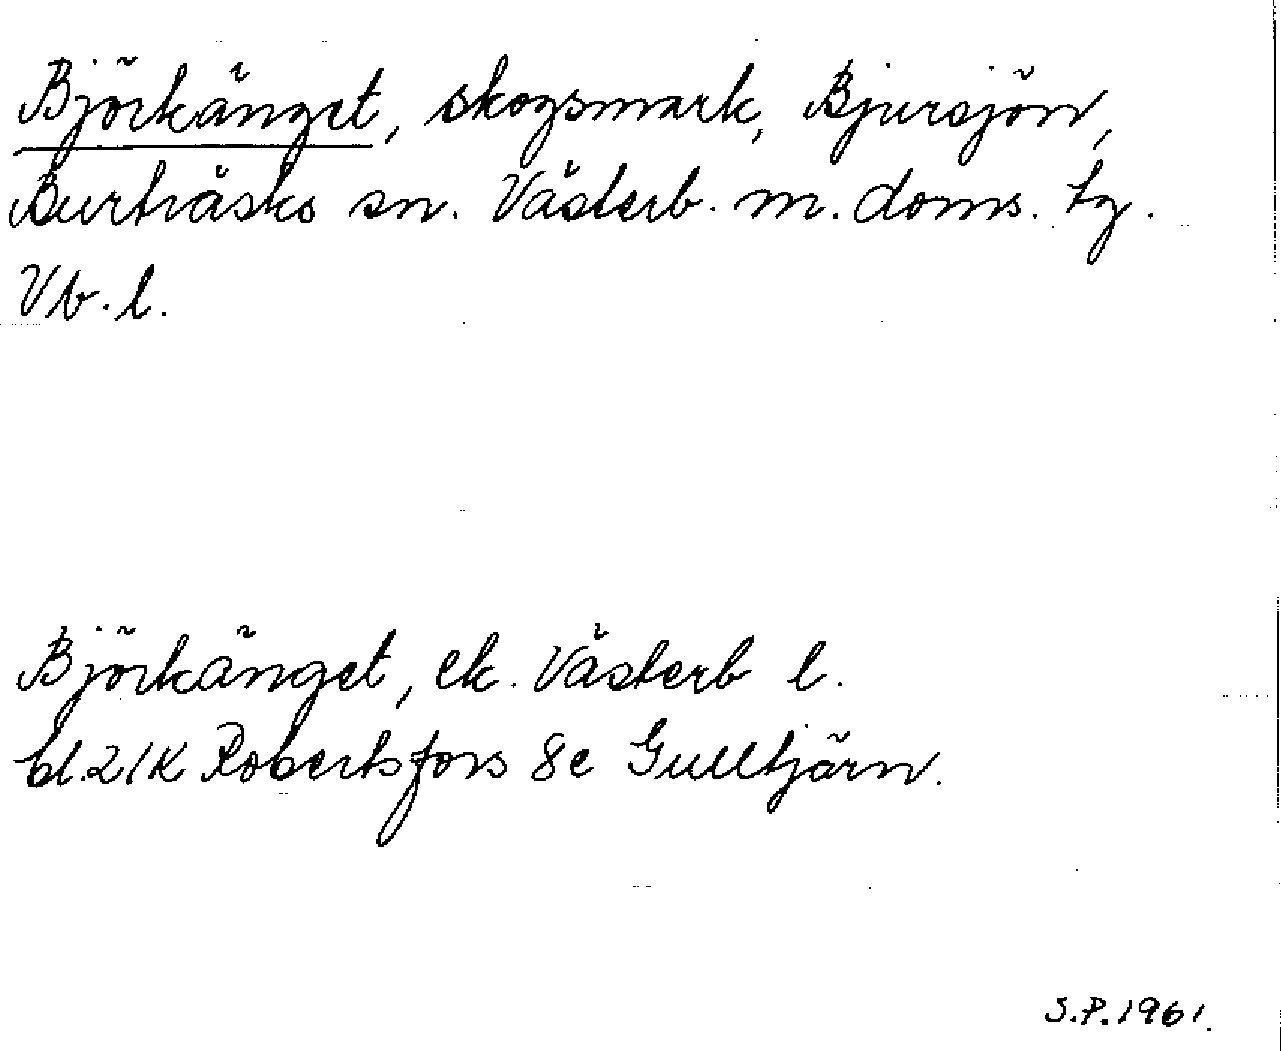 Björkänget, skogsmark, Bjursjön,
Burträsks sn. Västerb. m. doms. tg.
Vb. l.
Björkänget, ek. Västerb l.
bl. 21K Robertsfors 8e Gulltjärn.
S.P. 1961.